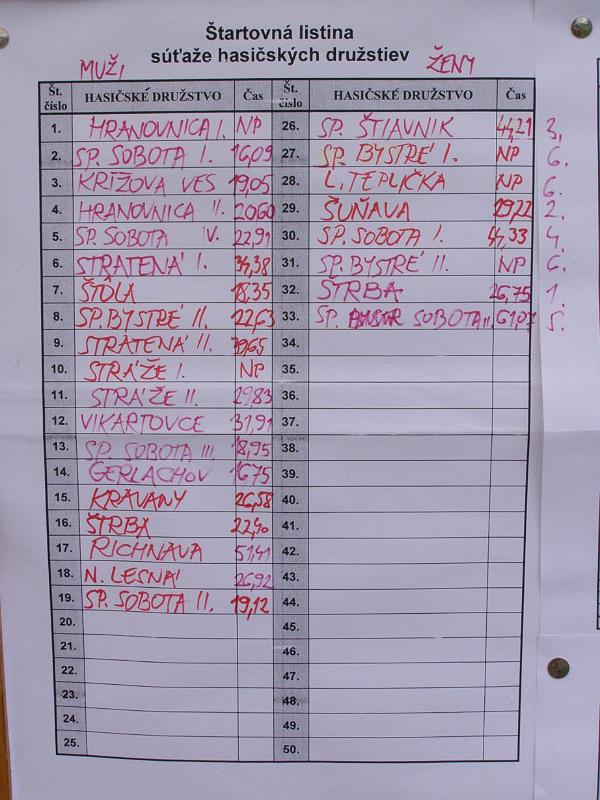 Štartovná listina
súťaže hasičských družstiev
MUŽI ŽENY
Št. číslo HASIČSKÉ DRUŽSTVO Čas Št. číslo HASIČSKÉ DRUŽSTVO Čas
1. HRANOVNICA I. NP 26. SP. ŠTIAVNIK 44,21 3.
2. SP. SOBOTA I. 16,09 27. SP. BYSTRÉ I. NP 6.
3. KRÍŽOVA VES 19,05 28. L. TEPLIČKA NP 6.
4. HRANOVNICA II. 20,60 29. ŠUŇAVA 29,22 2.
5. SP. SOBOTA IV. 22,91 30. SP. SOBOTA I. 44,33 4.
6. STRATENÁ I. 34,38 31. SP. BYSTRÉ II. NP 6.
7. ŠTÔLA 18,35 32. ŠTRBA 26,75 1.
8. SP. BYSTRÉ II. 22,63 33. SP. SOBOTA II. 61,07 5.
9. STRATENÁ II. 39,65 34.
10. STRÁŽE I. NP 35.
11. STRÁŽE II. 29,83 36.
12. VIKARTOVCE 31,91 37.
13. SP. SOBOTA III. 18,95 38.
14. GERLACHOV 16,75 39.
15. KRAVANY 26,58 40.
16. ŠTRBA 22,40 41.
17. RICHNAVA 51,41 42.
18. N. LESNÁ 26,92 43.
19. SP. SOBOTA II. 19,12 44.
20. 45.
21. 46.
22. 47.
23. 48.
24. 49.
25. 50.